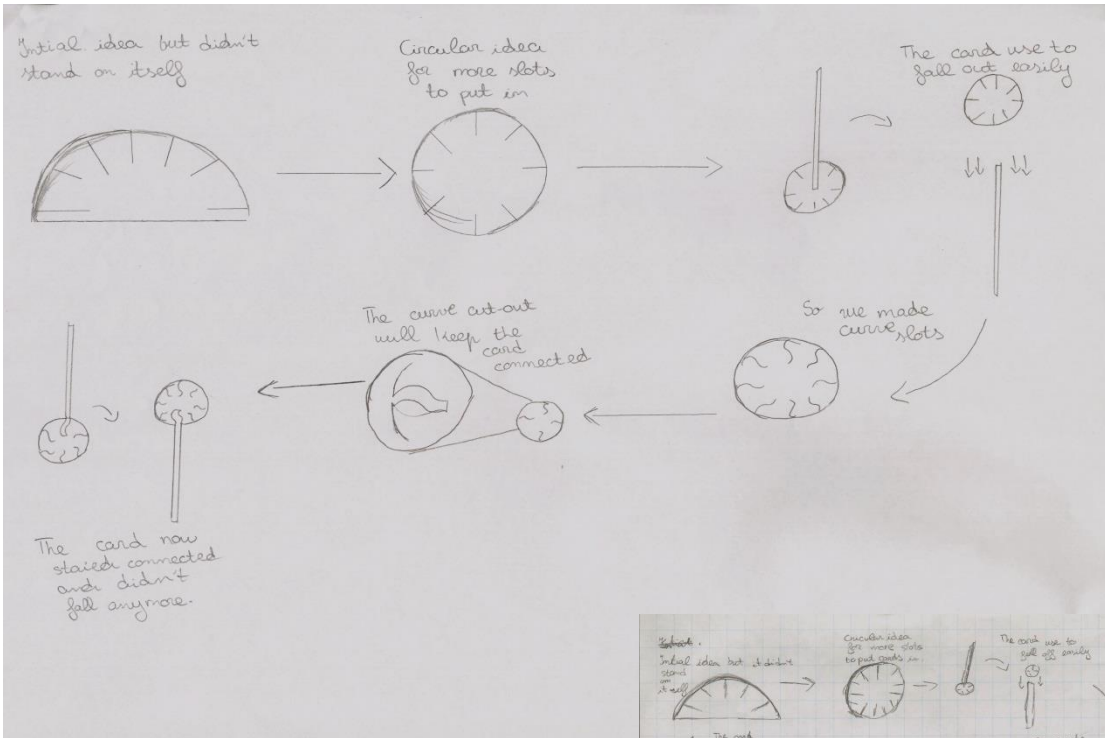 Intial idea but didn't
stand on itself
Circular idea
for more slots
to put in
The card use to
fall out easily
So we made
curve slots
The curve cut-out
will keep the
card
connected
The card now
staied connected
and didn't
fall anymore.
Intial idea but it didn't
stand
on
it self
Circular idea
for more slots
to put cards in.
The card use to
fall off easily
The card